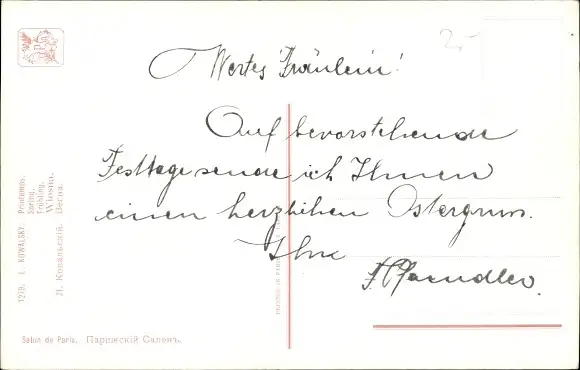 2.-
Wertes Fräulein!
Auf bevorstehende
Festtage sende ich Ihnen
einen herzlichen Ostergruss.
Ihre
1279. L. KOWALSKY. Printemps.
Spring.
Frühling.
Wiosna.
Л. Ковальскій. Весна.
Salon de Paris. Парижскій Салонъ.